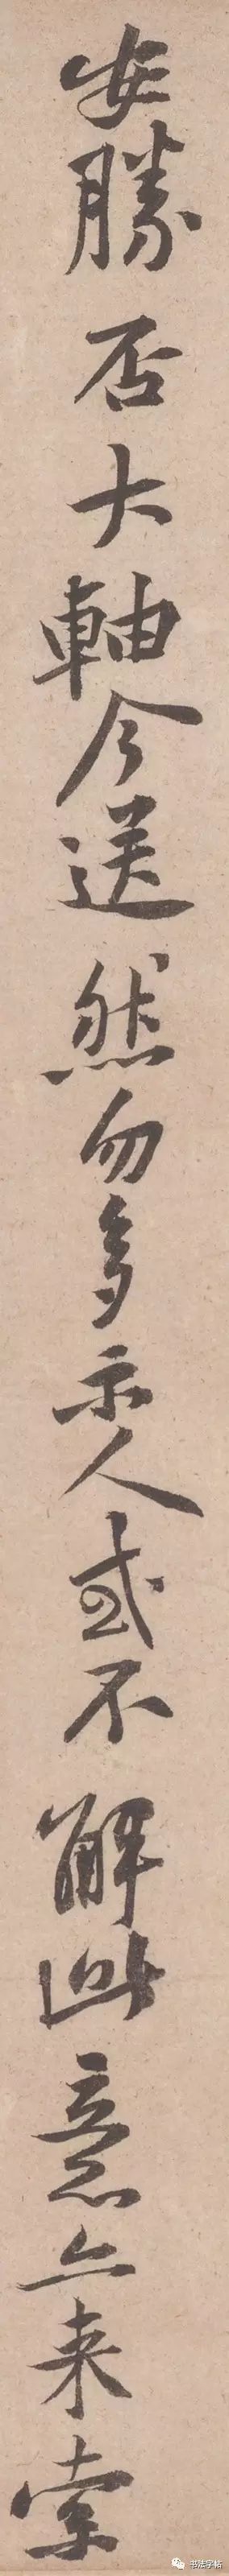 安勝否大軸今送然勿多示人或不解此意亦来索
书法字帖